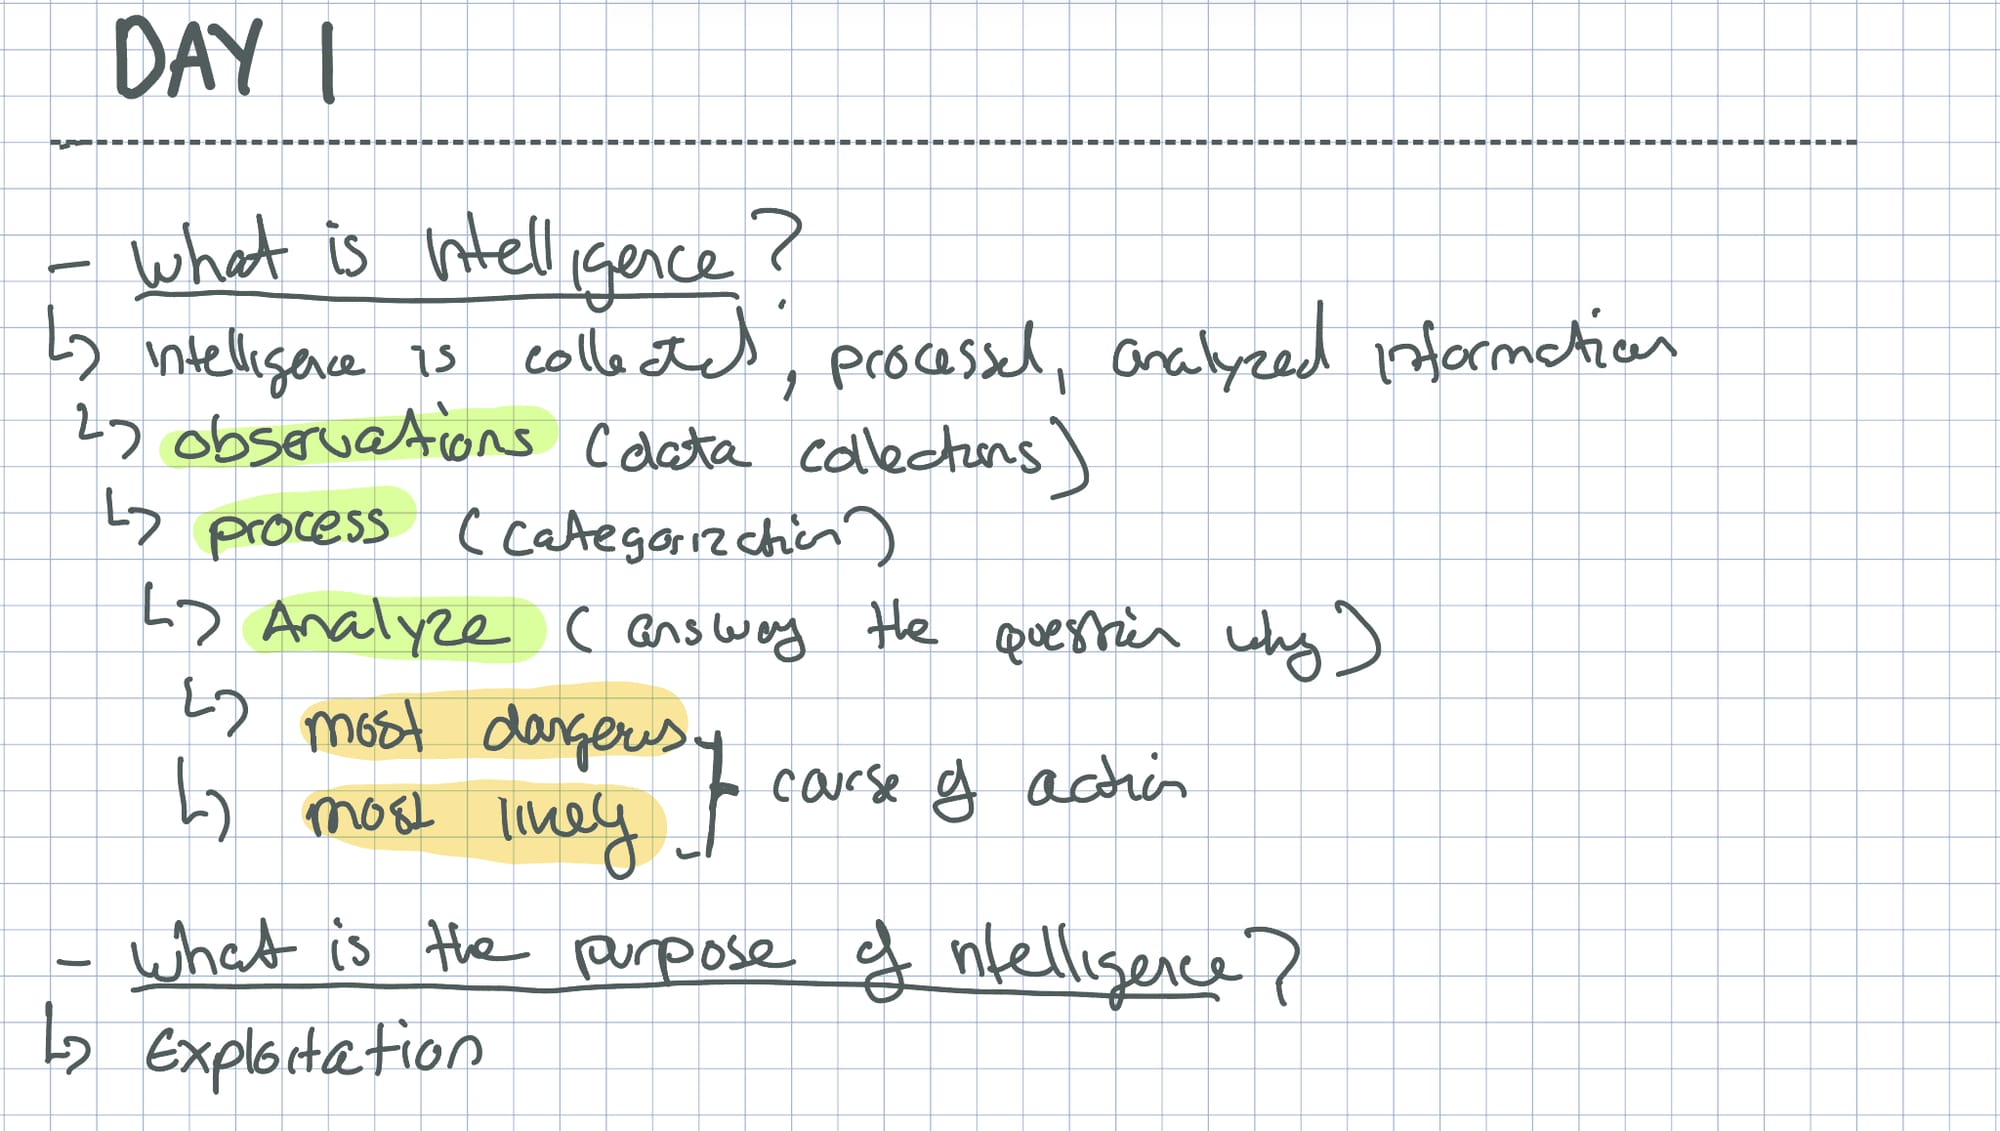 DAY 1
- What is Intelligence?
↳ intelligence is collected, processed, analyzed information
↳ observations (data collections)
↳ process (categorization)
↳ Analyze ( the question why)
↳ most dangerous
course of action
↳ most likely
- What is the purpose of intelligence?
↳ Exploitation